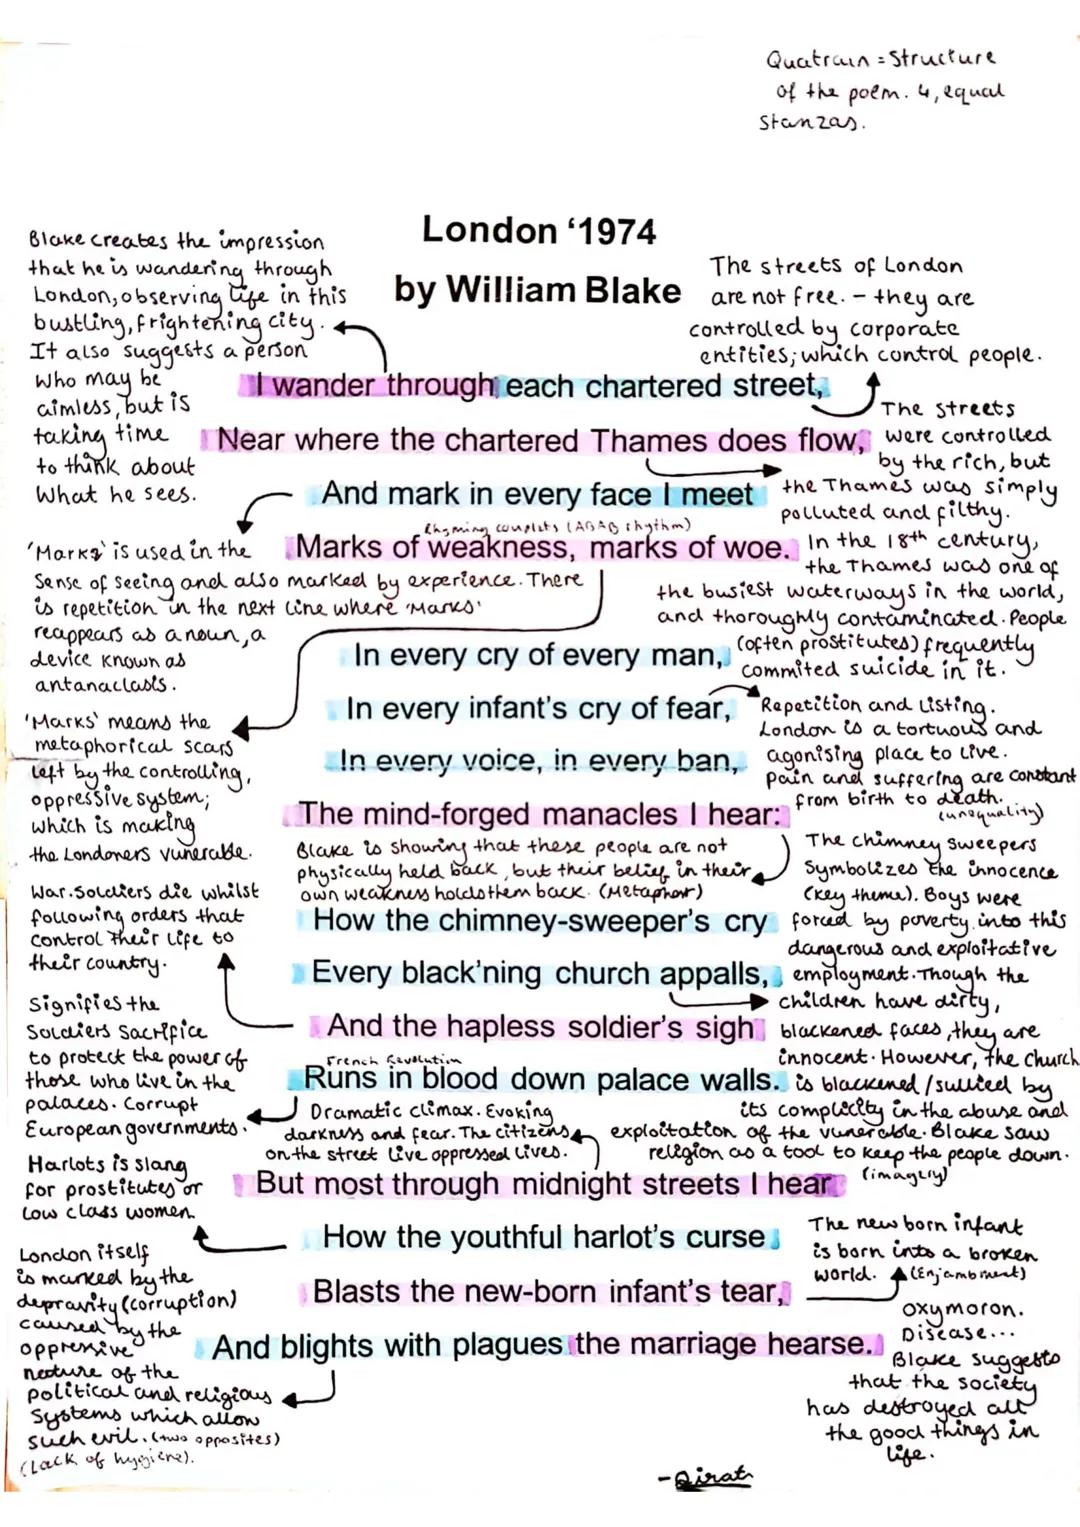 Quatrain = Structure
of the poem. 4, equal
Stanzas.
London ‘1974
by William Blake
Blake creates the impression
that he is wandering through
London, observing life in this
bustling, frightening city.
It also suggests a person
who may be
aimless, but is
taking time
to think about
What he sees.
The streets of London
are not free. – they are
controlled by corporate
entities; which control people.
I wander through each chartered street,
The streets
were controlled
by the rich, but
the Thames was simply
polluted and filthy.
In the 18th century,
the Thames was one of
the busiest waterways in the world,
and thoroughly contaminated. People
(often prostitutes) frequently
commited suicide in it.
Near where the chartered Thames does flow,
And mark in every face I meet
Rhyming couplets (ABAB rhythm)
Marks of weakness, marks of woe.
'Marks' is used in the
Sense of seeing and also marked by experience. There
is repetition in the next line where 'Marks'
reappears as a noun, a
device known as
antanaclasis.
In every cry of every man,
In every infant's cry of fear,
In every voice, in every ban,
The mind-forged manacles I hear:
'Marks' means the
metaphorical scars
left by the controlling,
oppressive system;
which is making
the Londoners vunerable.
Repetition and Listing.
London is a tortuous and
agonising place to live.
pain and suffering are constant
from birth to death.
(inequality)
Blake is showing that these people are not
physically held back, but their belief in their
own weakness holds them back. (Metaphor)
The chimney sweepers
Symbolizes the innocence
(key theme). Boys were
forced by poverty into this
dangerous and exploitative
employment. Though the
children have dirty,
blackened faces, they are
innocent. However, the Church
is blackened / sullied by
its complicity in the abuse and
exploitation of the vunerable. Blake saw
religion as a tool to keep the people down.
(imagery)
War. Soldiers die whilst
following orders that
control their life to
their country.
How the chimney-sweeper's cry
Every black'ning church appalls,
And the hapless soldier's sigh
French Revolution
Runs in blood down palace walls.
Signifies the
Soldiers Sacrifice
to protect the power of
those who live in the
palaces. Corrupt
European governments.
Dramatic climax. Evoking
darkness and fear. The citizens
on the street live oppressed lives.
But most through midnight streets I hear
How the youthful harlot's curse
Blasts the new-born infant's tear,
And blights with plagues the marriage hearse.
Harlots is slang
for prostitutes or
low class women.
The new born infant
is born into a broken
world.
(Enjambment)
London itself
is marked by the
depravity (corruption)
caused by the
oppressive
nature of the
political and religious
Systems which allow
such evil. (two opposites)
(Lack of hygiene).
oxymoron.
Disease...
Blake suggests
that the society
has destroyed all
the good things in
life.
-Qirat